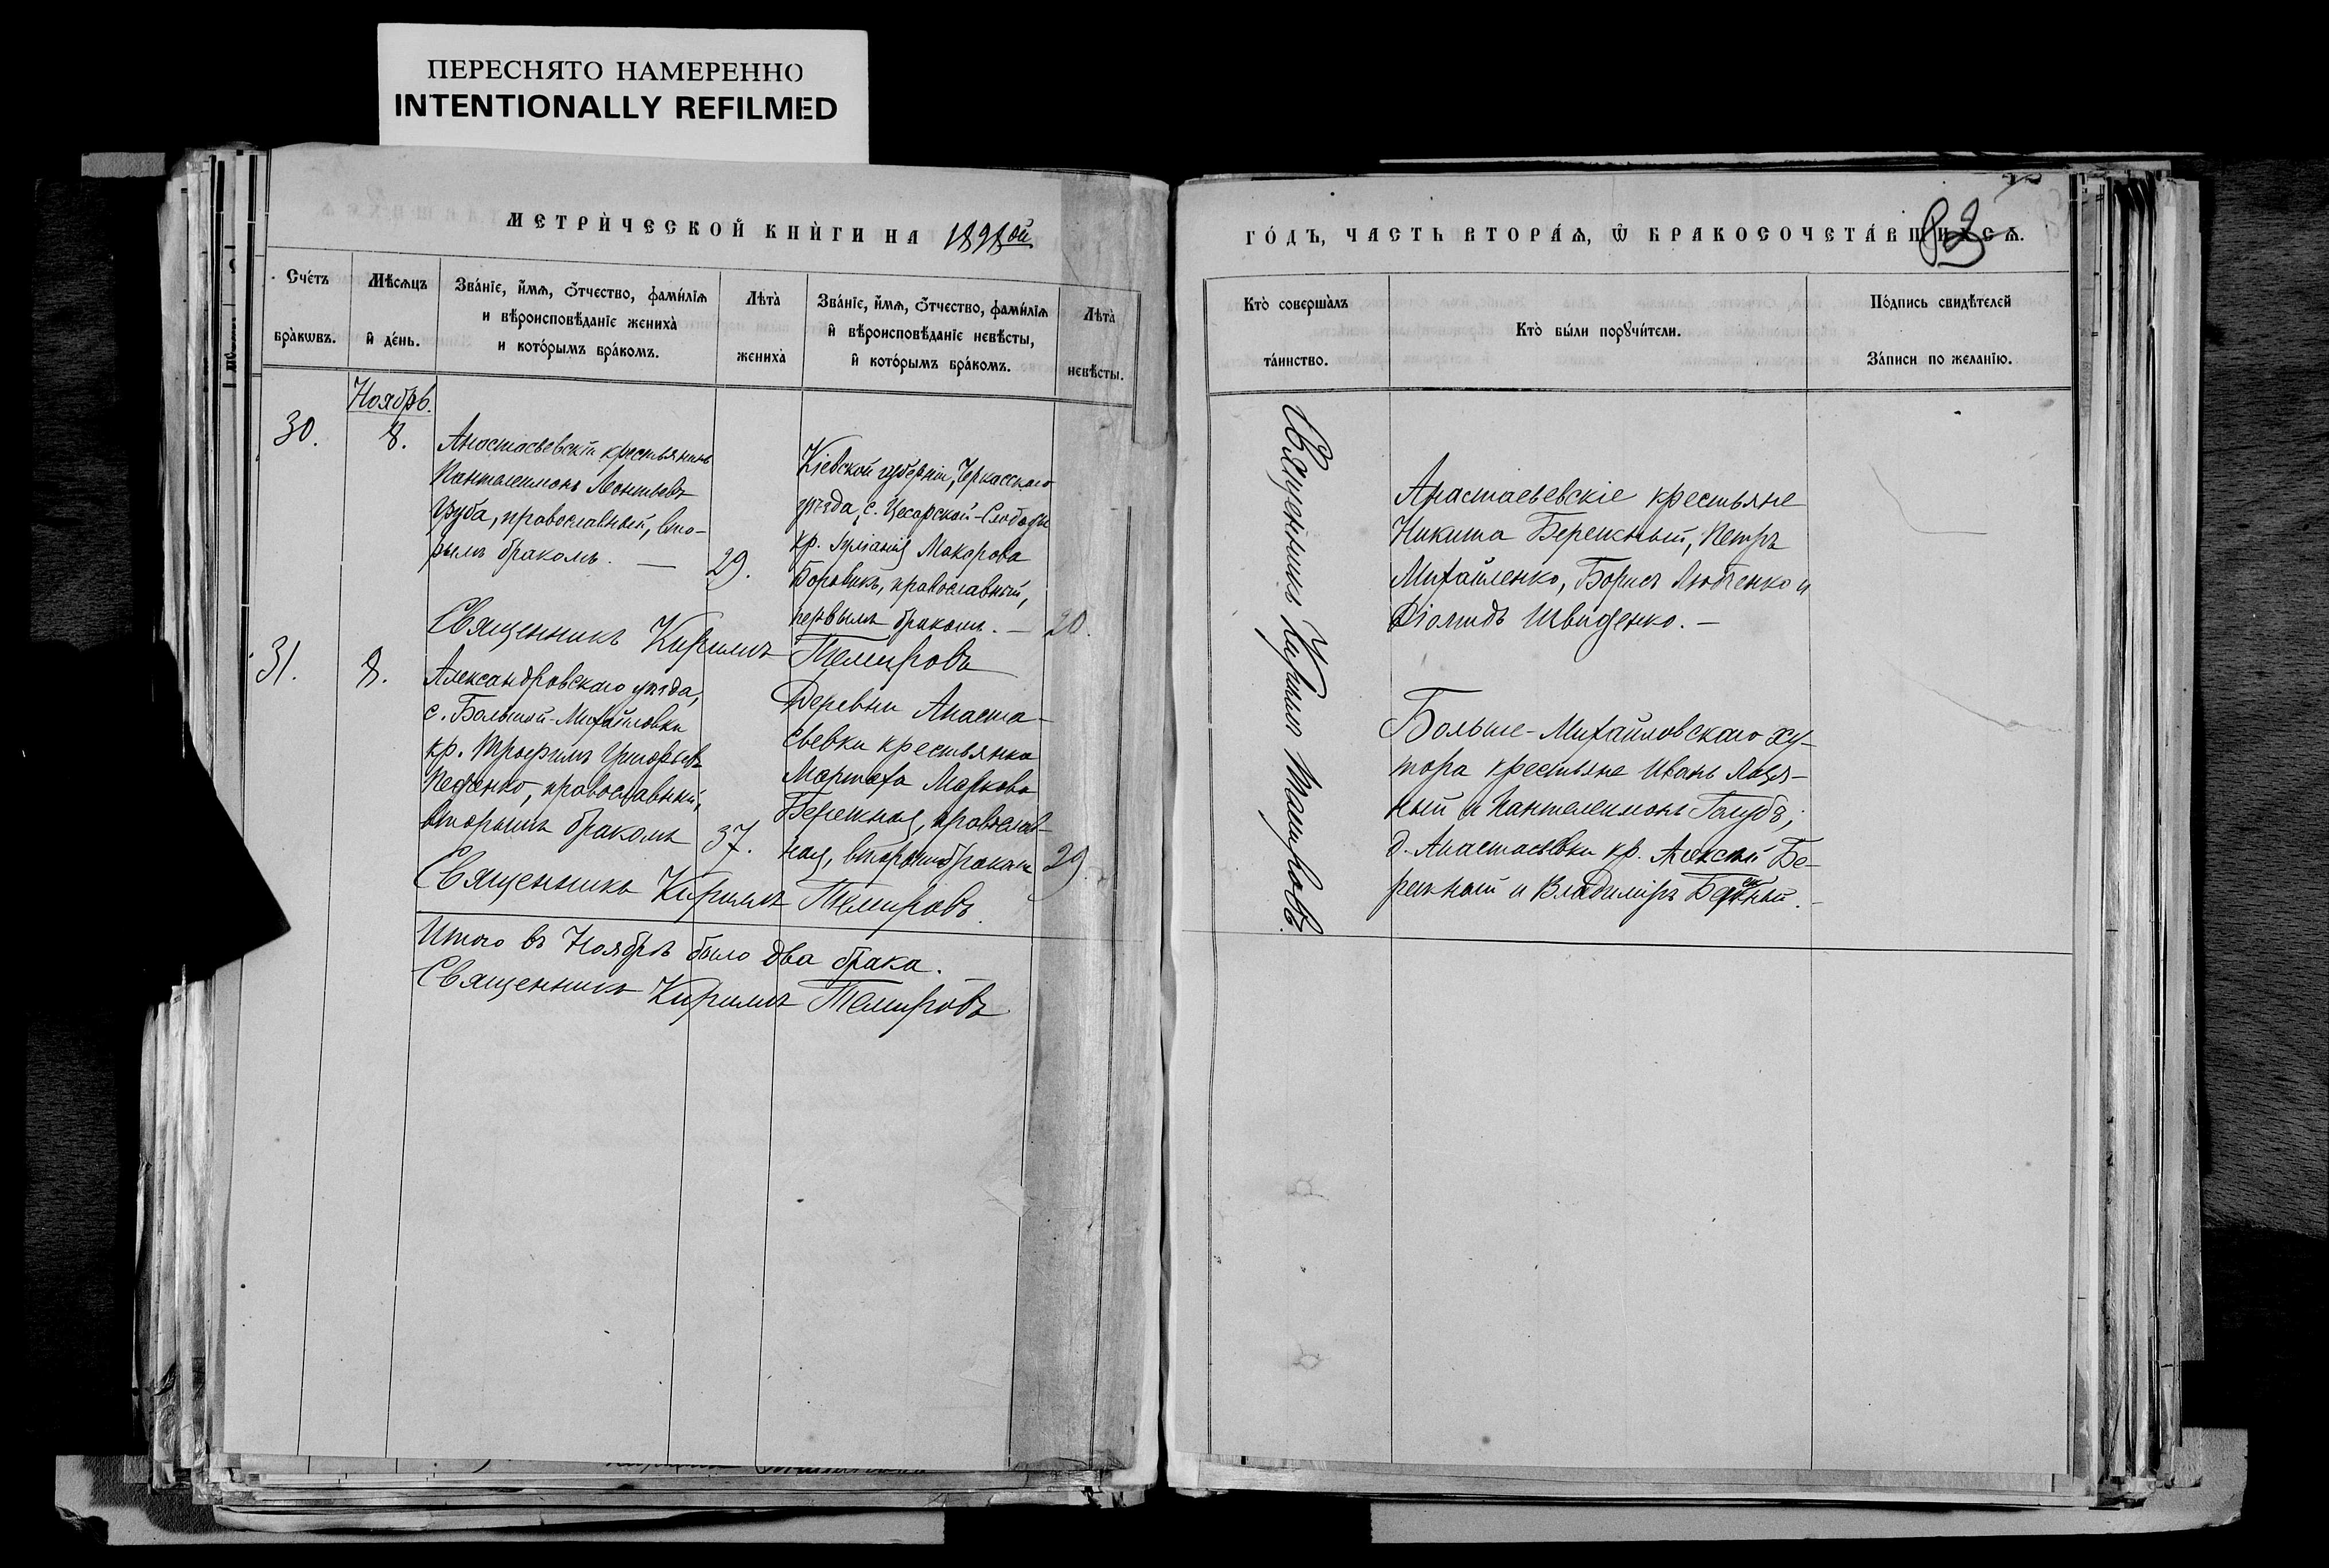 ПЕРЕСНЯТО НАМЕРЕННО
INTENTIONALLY REFILMED
МЕТРИ́ЧЕСКОЙ КНИ́ГИ НА 1898ой
Сче́тъ бра́кѡвъ.
Мѣ́сѧцъ и҆ де́нь.
Зва́нїе, и҆́мѧ, ѻ҆́тчество, фамі́лїѧ
и вѣроисповѣ́данїе жениха̀
и кото́рымъ бра́комъ.
Лѣта̀ жениха̀
Зва́нїе, и҆́мѧ, ѻ҆́тчество, фамі́лїѧ
и҆ вѣроисповѣ́данїе невѣ́сты,
и҆ кото́рымъ бра́комъ.
Лѣта̀ невѣ́сты.
Ноябрь.
30.
8.
Анастасьевскій крестьянинъ
Пантелеимонъ Леонтьевъ
православный, вто-
рымъ бракомъ. —
29.
Кіевской губерніи, Черкасскаго
уѣзда, с. Цесарской-Слободы
кр. Іуліанія Макарова
Боровикъ, православный,
первымъ бракомъ. —
20.
Священникъ Кириллъ Темировъ
31.
8.
Александровскаго уѣзда,
с. Большой-Михайловки
кр. Трофимъ Григорьевъ
православный,
вторымъ бракомъ
37.
Деревни Анаста-
сьевки крестьянка
Марфа Маркова
Бережная, православ-
ная, вторымъ бракомъ
29.
Священникъ Кириллъ Темировъ.
Итого въ Ноябрѣ было два брака.
Священникъ Кириллъ Темировъ
ГО́ДЪ, ЧА́СТЬ ВТОРА́Ѧ, Ѡ҆ БРАКОСОЧЕТА́ВШИХСѦ.
82
Кто̀ соверша̀лъ
та́инство.
Кто̀ бы́ли порꙋчи́тели.
По́дпись свидѣ́телей
За́писи по жела́нїю.
Священникъ Кириллъ Темировъ.
Анастасьевскіе крестьяне
Никита Бережный, Петръ
Михайленко, Борисъ Любченко и
Діомидъ Швиденко. —
Больше-Михайловскаго ху-
тора крестьяне Иванъ
и Пантелеимонъ
д. Анастасьевки кр. Алексѣй Бе-
режный и Владиміръ Бережный. —